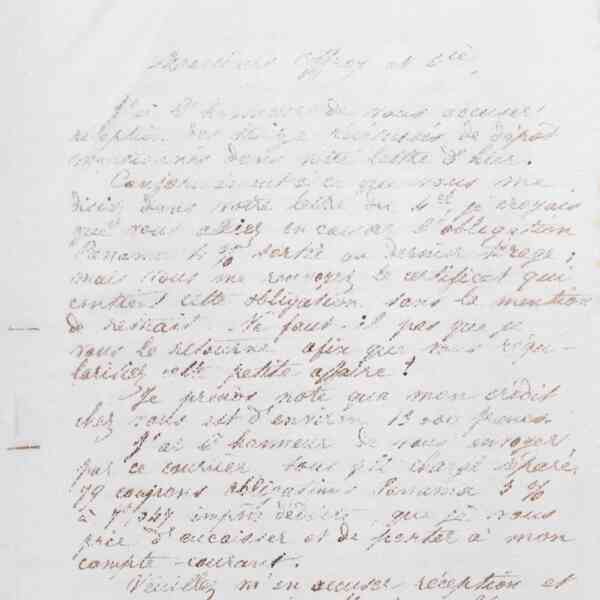 Messieurs Offroy et Cie,
J'ai l'honneur de vous accuser
réception des récépissés de dépôt
mentionnés dans votre lettre d'hier.
Conformément à ce que vous me
disiez dans votre lettre du 4 et je croyais
que vous alliez encaisser l'obligation
Panama 3 % sortie au dernier tirage ;
mais vous me renvoyez le certificat qui
contient cette obligation, sans la mention
de remait. Ne faut-il pas que je
vous le retourne afin que vous régu-
larisiez cette petite affaire ?
Je prends note que mon crédit
chez vous est d'environ 13 000 francs.
J'ai l'honneur de vous envoyer
par ce courrier, sous pli chargé séparé,
79 coupons obligations Panama 3 %
à 7 347 impôts déduits, que je vous
prie d'encaisser et de porter à mon
compte-courant.
Veuillez m'en accuser réception et